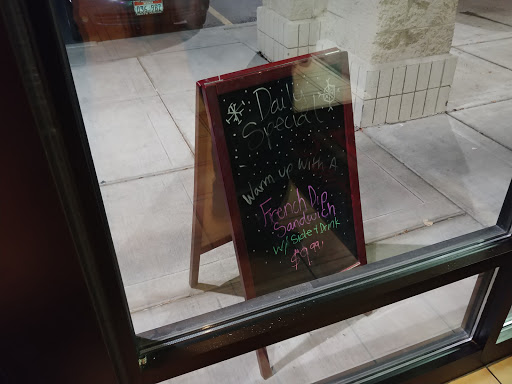 Daily
Special
Warm up with A
French Dip
Sandwich
w/ Side & Drink
$9.99!